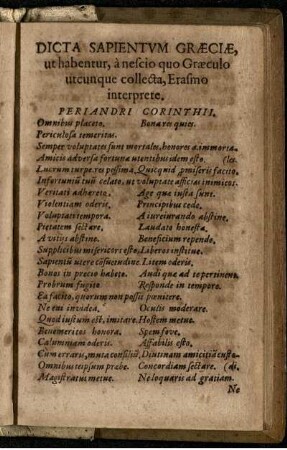 DICTA SAPIENTVM GRÆCIÆ,
ut habentur, à nescio quo Græculo
utcunque collecta, Erasmo
interprete.
PERIANDRI CORINTHII.
Omnibus placeto. Bona res quies.
Periculosa temeritas.
Semper voluptates sunt mortales, honores a. immorta.
Amicis adversa fortuna utentibus idem esto. (les.
Lucrum turpe, res pessima. Quicquid promiseris facito.
Infortuniū tuū celato, ut voluptate afficias inimicos.
Veritati adhæreto. Age quæ iusta sunt.
Violentiam oderis. Principibus cede.
Voluptati tempera. A iureiurando abstine.
Pietatem sectare. Laudato honesta.
A vitiis abstine. Beneficium repende.
Supplicibus misericors esto. Liberos institue.
Sapientū utere cōsuetudine Litem oderis.
Bonos in precio habeto. Audi quæ ad te pertinent.
Probrum fugito. Responde in tempore.
Ea facito, quorum non possis pœnitere.
Ne cui invideas. Oculis moderare.
Quod iustum est, imitare. Hostem metue.
Benemeritos honora. Spem fove.
Calumniam oderis. Affabilis esto.
Cum erraris, muta consiliū. Diutinam amicitiā custo-
Omnibus teipsum præbe. Concordiam sectare. (di.
Magistratus metue. Ne loquaris ad gratiam.
Ne